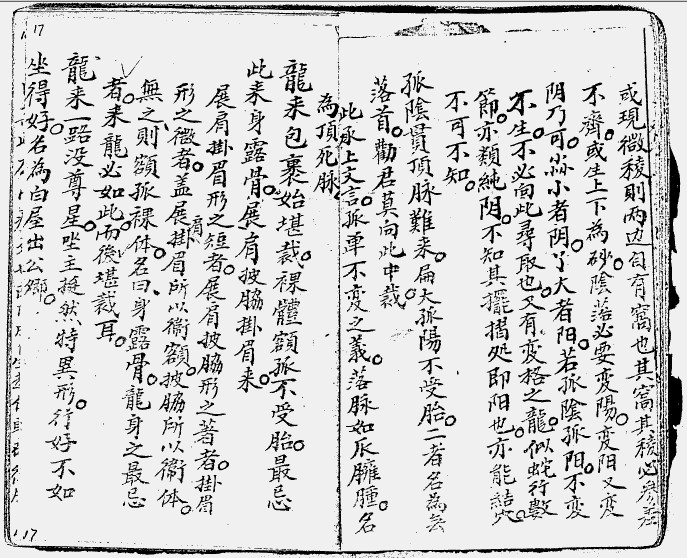 或現微稜則两边自有窩也其窩其稜必參差
不齊。或生上下為砂。陰落必要变陽。变阳又变
阴乃可。蓋小者阴。大者阳。若孤陰孤阳。不变
不生。不必向此尋取也。又有变格之龍。似蛇行數
節。亦類純阴。不知其擺摺処即阳也。亦能結穴。
不可不知。
孤陰貫頂脉難来。扁大孤陽不受胎。二者名為
落首。勸君莫向此中裁。
此承上文言。孤單不变之義。落脉如瓜臃腫。名
為頂死脉。
龍来包裹始堪裁。裸體額孤不受胎。最忌
此来身露骨。展肩披脇掛眉来
展肩掛眉形之短者。展肩披脇形之著者。掛眉
形之微者。盖展肩掛眉所以衞額。披脇所以衞体。
無之則額孤裸体。名曰身露骨。龍身之最忌
者。来龍必如此。而後堪裁耳。
龍来一路没尊星。坐主挺然特異形。行好不如
坐得好。名為白屋出公卿。
17
17